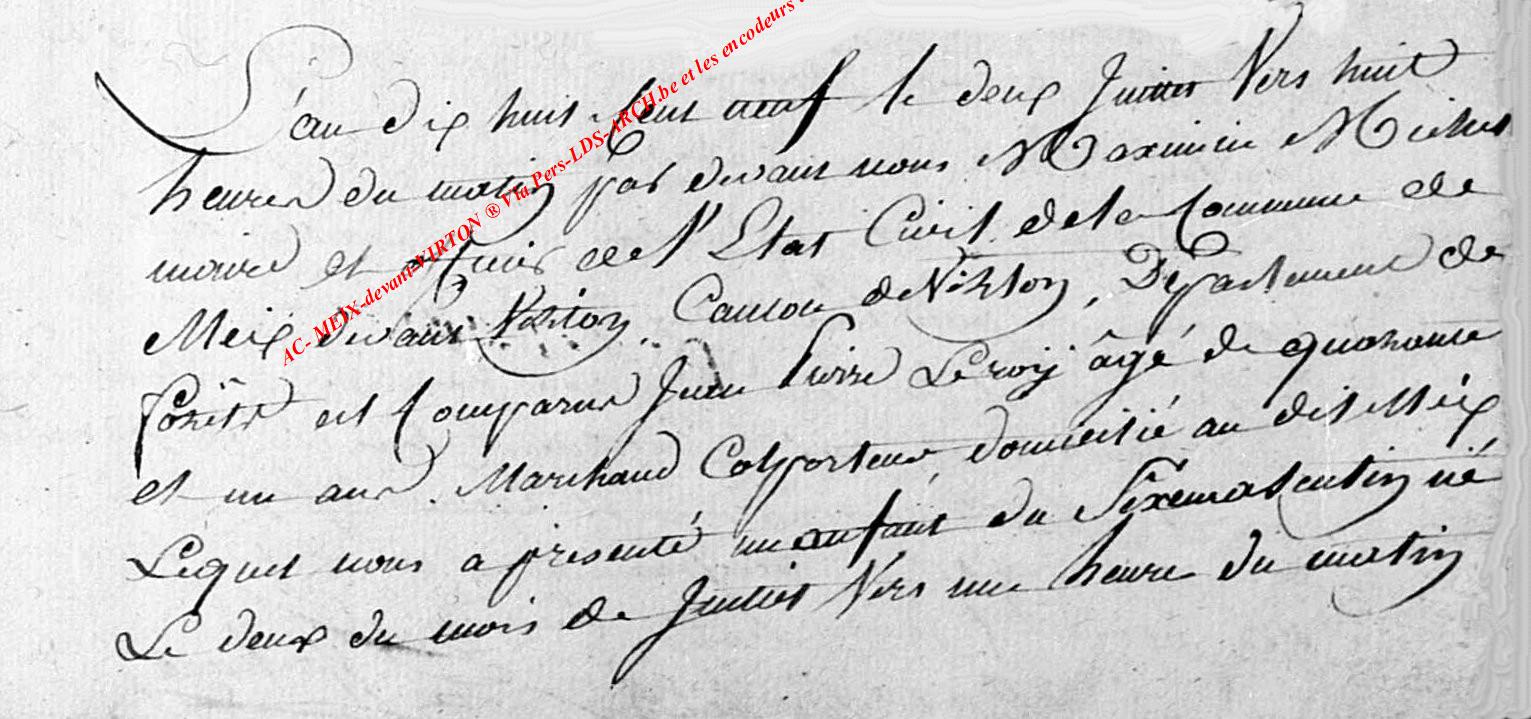 AC- MEIX-devant-VIRTON ® Via Pers-LDS-ARCH.be et les encodeurs
L'an dix huit Cent neuf le deux Juillet Vers huit
heures du matin par devant nous Maximin Michel
maire et officier de l'Etat Civil de la Commune de
Meix devant Virton, Canton de Virton, Département de
forêts est Comparu Jean Pierre Leroy âgé de quarante
et un ans. Marchand Colporteur, domicilié au dit Meix
Lequel nous a présenté un enfant du Sexe masculin né
Le deux du mois de Juillet Vers une heure du matin